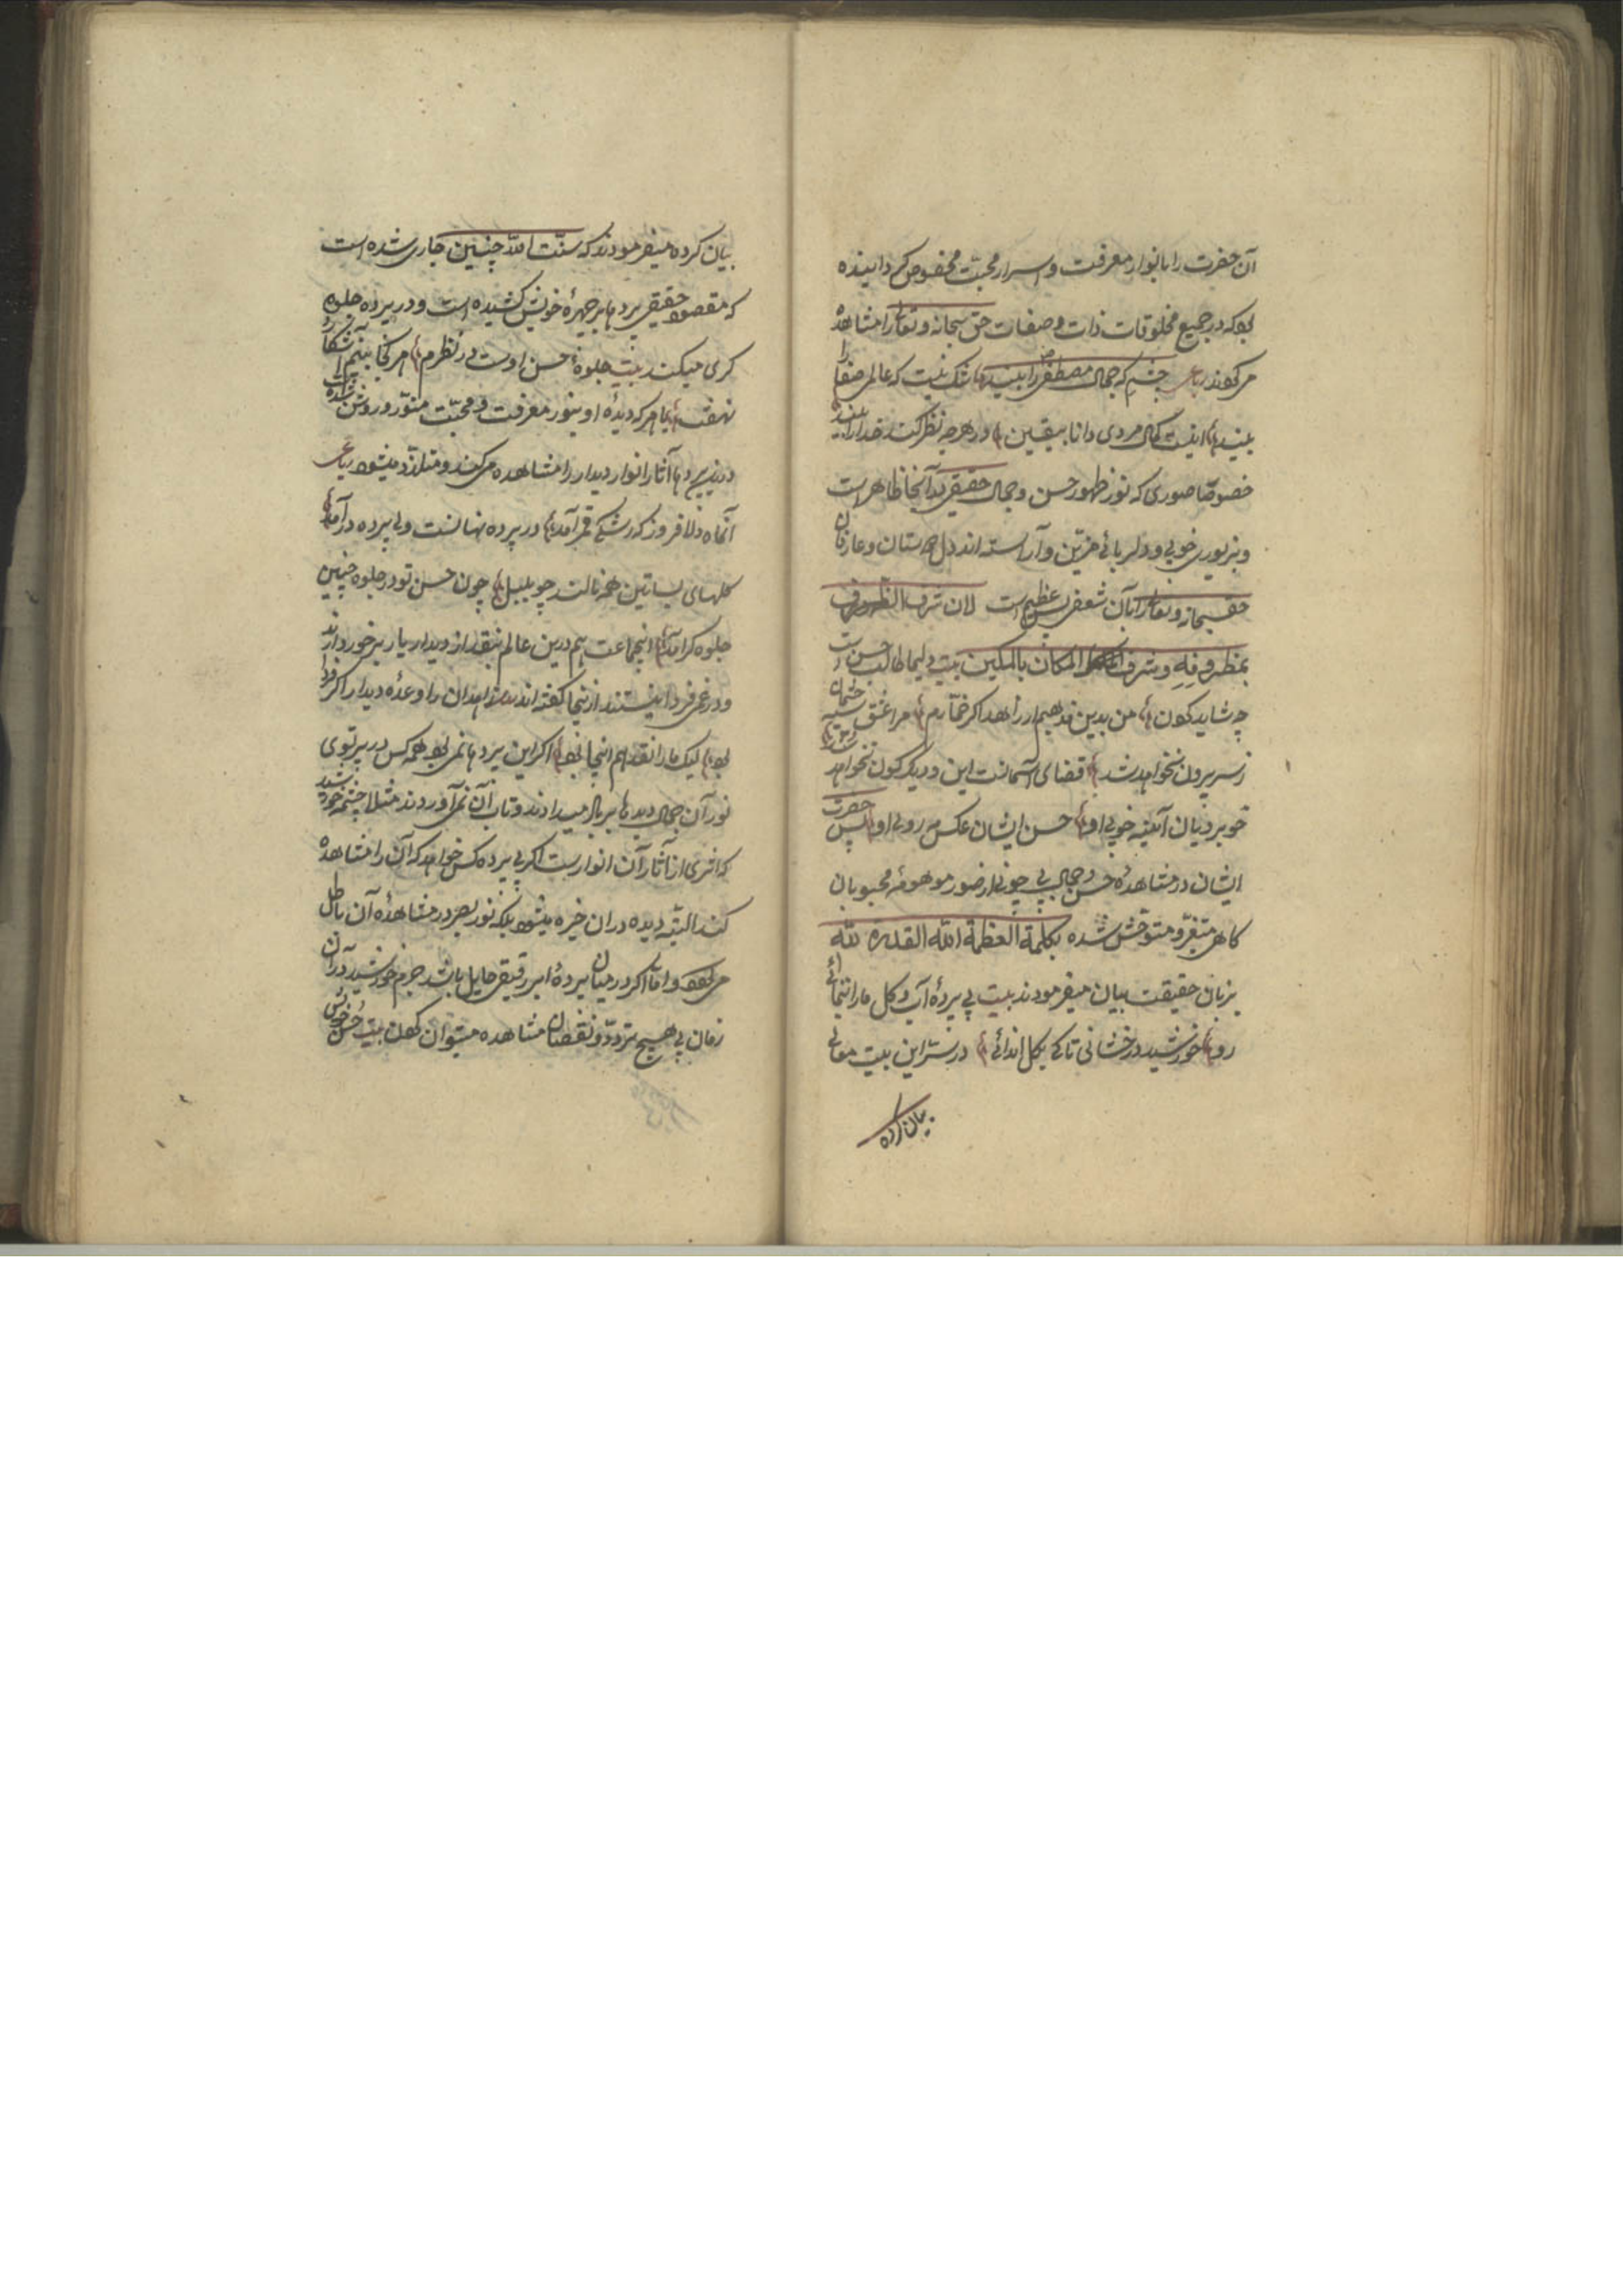 آن حضرت را بانوار معرفت و اسرار محبّت مخصوص کردانیده
بود که در جمیع مخلوقات ذات و صفات حق سبحانه و تعالی را مشاهده
می کردند رباعی چشمی که جمال مصطفی را بیند شک نیست که عالم صفا را
بیند اینست کمال مردی دانا بیقین در هرچه نظر کند خدا را بیند
خصوصا صوری که نور ظهور حسن و جمال حقیقی در آنجا ظاهر است
و بزیور خوبی و دلربائی مزیّن و آراسته اند دل دوستان و عارفان
حق سبحانه و تعالی را بآن شعفی بس عظیم است لان شرف الظروف
بمظروفه و شرف المکان بالمکین بیت دلیما طالب حسن است
چه شاید کردن من بدین مذهبم ار زاهد اکر خمّارم مرا عشق سیه چشمان
ز سر بیرون نخواهد شد قضای آسمانست این و دیکر کون نخواهد شد
خوبرویان آینه خوبی او حسن ایشان عکس مه روی او پس حضرت
ایشان در مشاهدهٔ حسن و جمال بی چونی از صور موهومهٔ محبوبان
کاهی متغیّر و متوحّش شده بکلمة العظمة الله القدرة لله
بزبان حقیقت بیان میفرمودند بیت بی پردهٔ آب و کل ما را ننمائی
رو خورشید درخشانی تا کی بکل اندائی در ستر این بیت معانی
بیان کرده
بیان کرده میفرمودند که سنّت الله چنین جاری شده است
که مقصود حقیقی پردها بر چهرهٔ خویش کشیده است و در پرده جلوه
کری میکند بیت جلوهٔ حسن اوست در نظرم هر کجا بینم آشکار و
نهفت اما هر که دیدهٔ او بنور معرفت و محبّت منوّر و روشن شده است
درین پردها آثار انوار دیدار را مشاهده می کند و متلذّذ میشود رباعی
آنماه دلافروز که رشک قمر آمد در پرده نهانست ولی پرده در آمد
کلهای بساتین همه نالند چو بلبل چون حسن تو در جلوه چنین
جلوه کر آمد اینجماعت هم درین عالم بنقد از دیدار یار برخوردارند
و در غم فردا نیستند ازینجا کفته اند زاهدان را وعدهٔ دیدار اکر فردا
بود لیک ما را نقد هم اینجا بود اکر این پردها نمی بود همه کس در پرتوی
نور آن جمال دیدها بر باد میدادند و تاب آن نمی آوردند مثلا چشمه خورشید
که اثری از آثار آن انوارست اکر بی پرده کس خواهد که آن را مشاهده
کند البتّه دیده دران خیره میشود بلکه نور بصر در مشاهدهٔ آن باطل
می کردد و امّا اکر در میان پردهٔ ابر رقیقی حایل باشد جرم خورشید در آن
زمان بی هیچ تردّد و نقصان مشاهده میتوان کردن بیت حسن خویش